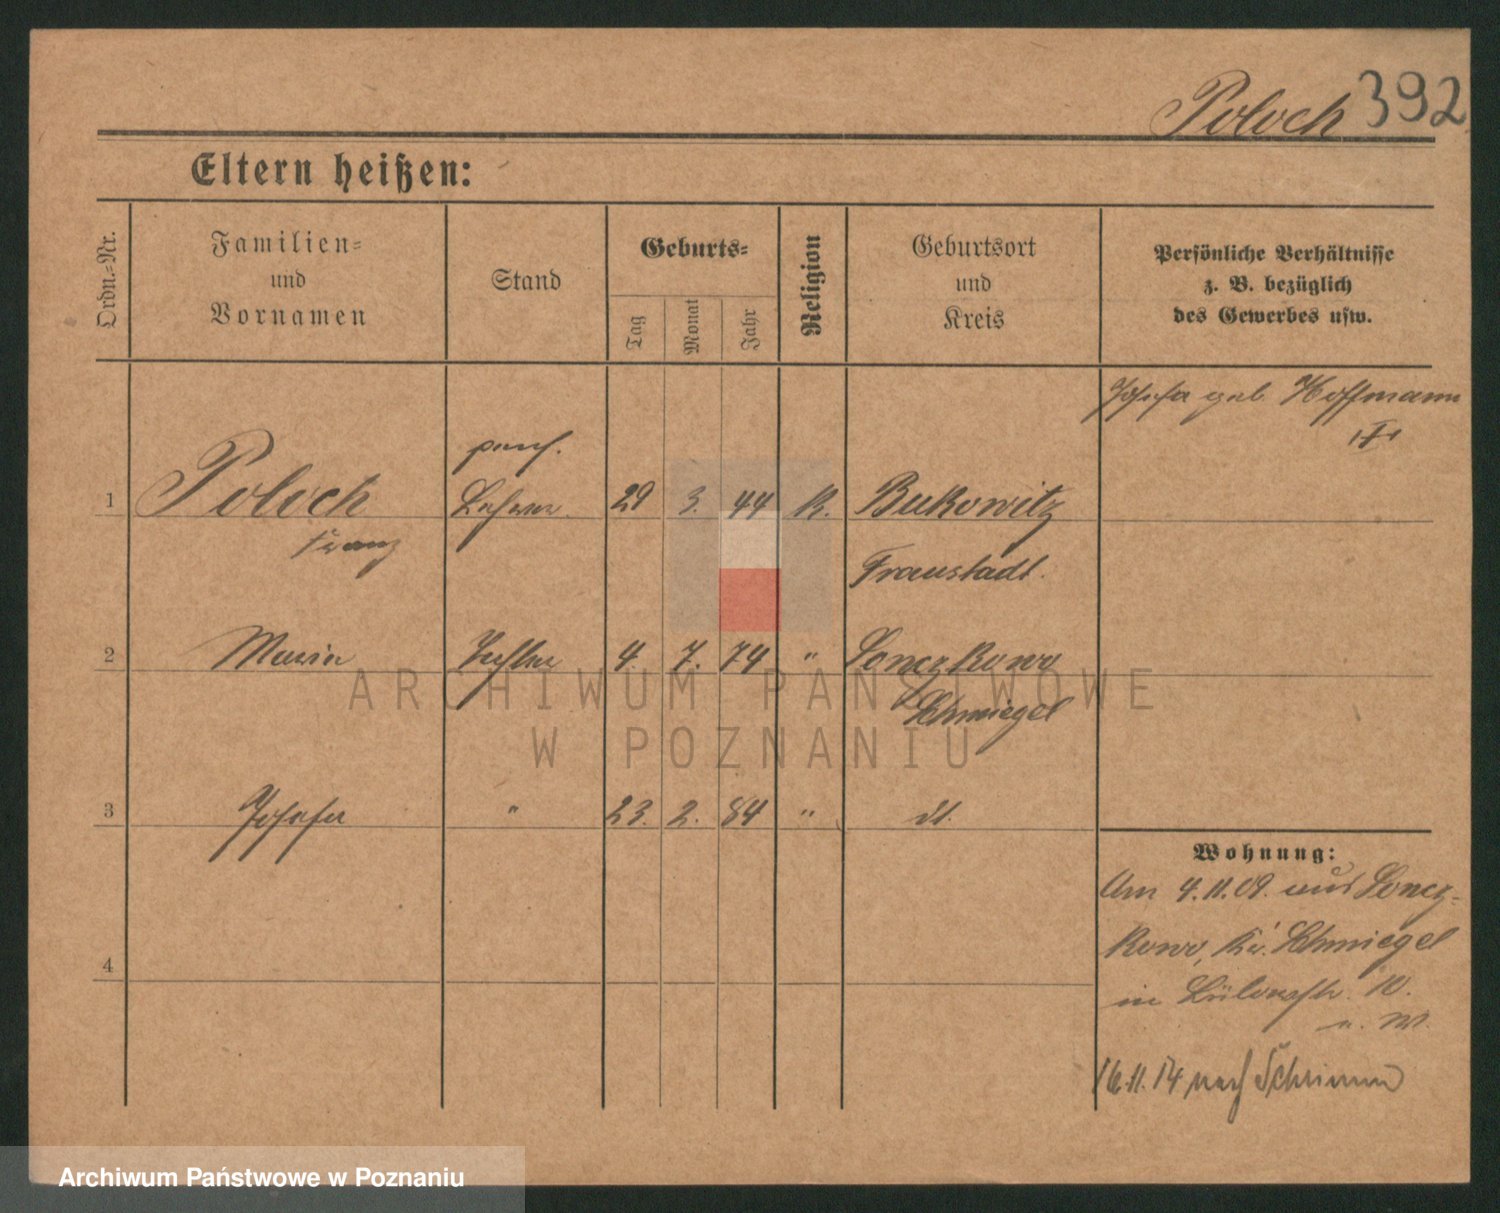 Poloch 392
Eltern heißen:
Ordn.-Nr.
Familien-
und
Vornamen
Stand
Geburts-
Tag
Monat
Jahr
Religion
Geburtsort
und
Kreis
Persönliche Verhältnisse
z. B. bezüglich
des Gewerbes usw.
Josefa geb Hoffmann
pens.
1 Poloch Lehrer 29 3. 44 K. Bukowitz
Franz
Fraustadt.
2 Maria Tochter 4. 7. 74 " Lonczkowo
Schmiegel
ARCHIWUM PAŃSTWOWE
W POZNANIU
3 Josefa " 23. 2. 84 " dt.
Wohnung:
Am 4.11.09. ausLoncz-
kowo, Kr. Schmiegel
in Bülowstr. 10.
4
16.11.14 nach Schrimm
Archiwum Państwowe w Poznaniu